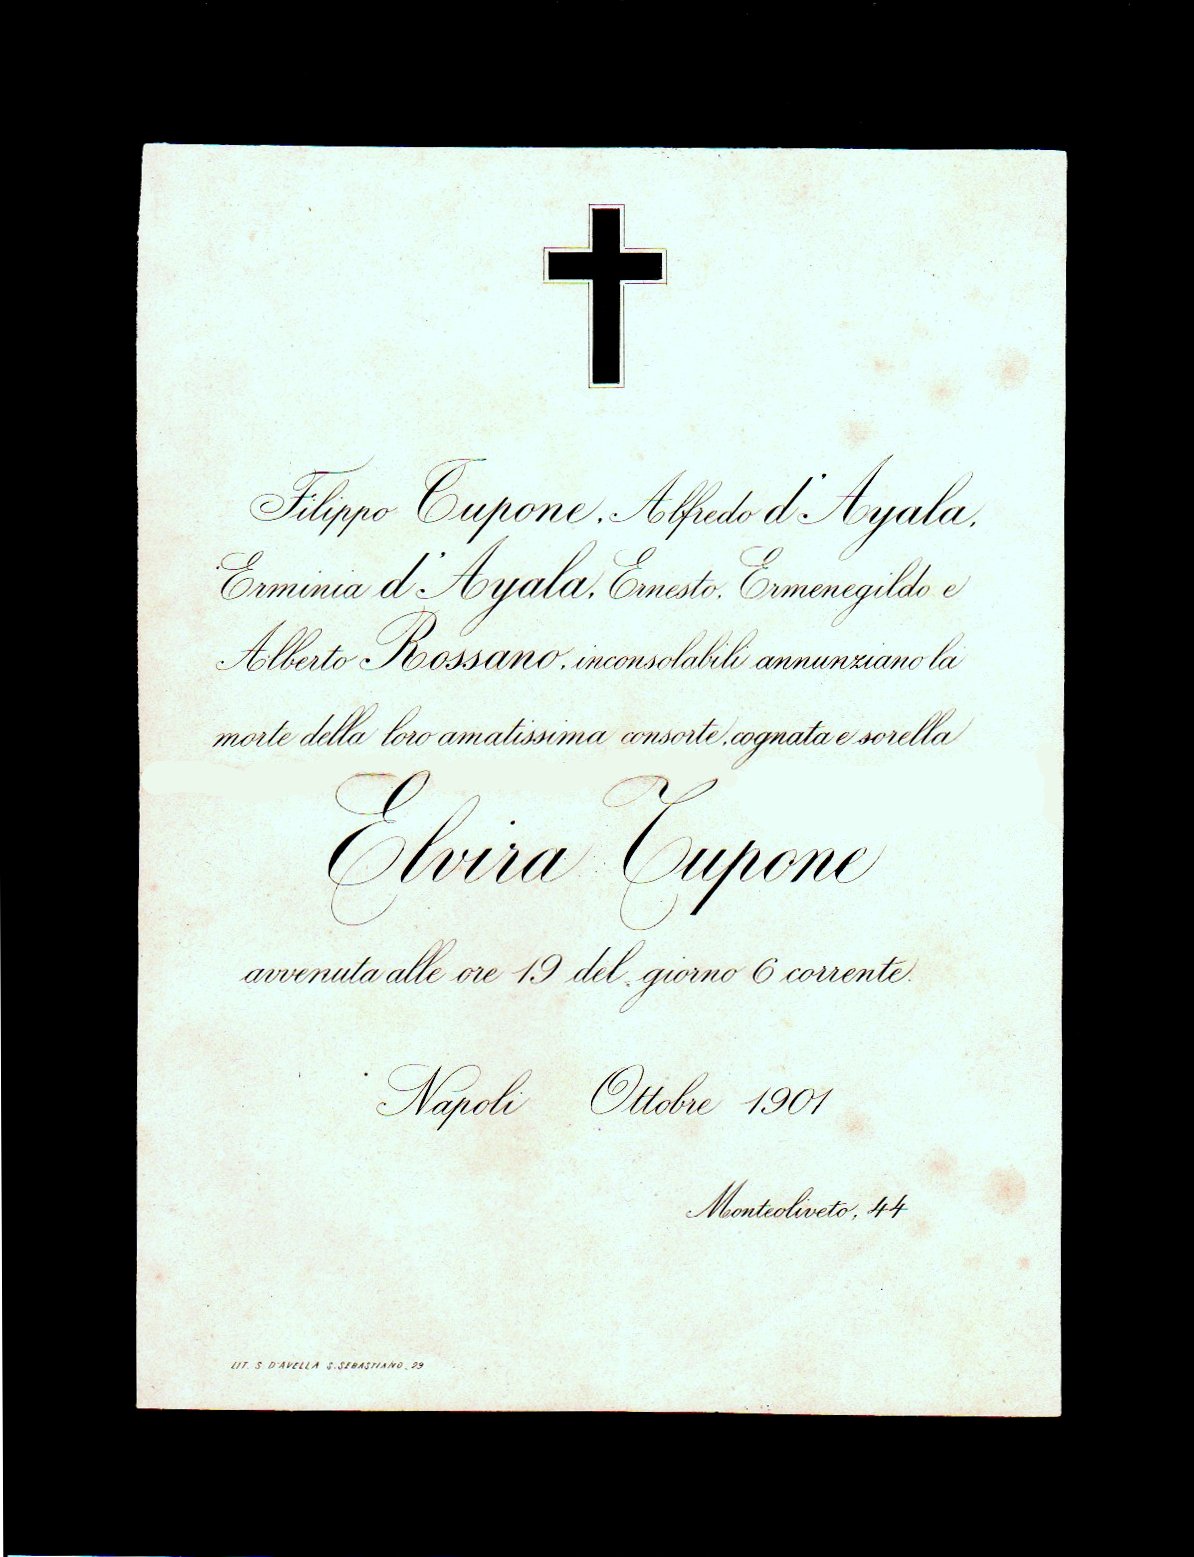 Filippo Tupone, Alfredo d'Ayala,
Erminia d'Ayala, Ernesto, Ermenegildo e
Alberto Rossano, inconsolabili annunziano la
morte della loro amatissima consorte, cognata e sorella
Elvira Tupone
avvenuta alle ore 19 del giorno 6 corrente.
Napoli Ottobre 1901
Monteoliveto, 44
LIT. S. D'AVELLA S. SEBASTIANO, 29